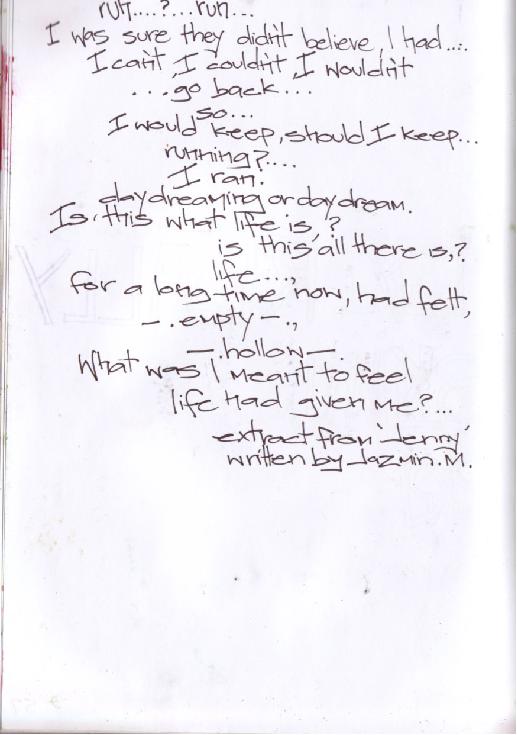 run....?...run...
I was sure they didn't believe, I had....
I can't, I couldn't, I wouldn't
...go back...
so...
I would keep, should I keep...
running?....
I ran.
daydreaming or daydream.
Is, this what life is,?
is 'this' all there is,?
life....,
for a long time now, had felt,
-.empty-.,
-.hollow-.
What was I meant to feel
life had given me?...
extract from 'Jenny'
written by Jazmin.M.